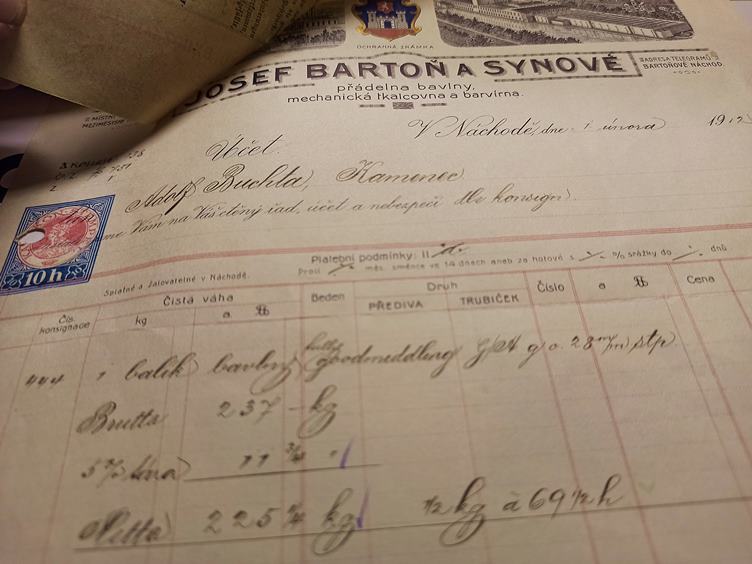 OCHRANNÁ ZNÁMKA
JOSEF BARTOŇ A SYNOVÉ
přádelna bavlny,
mechanická tkalcovna a barvírna.
ADRESA TELEGRAMŮ
BARTOŇOVÉ NÁCHOD.
MÍSTNÍ
MEZIMĚSTSKÝ
V Náchodě, dne 1 února 1912
Účet.
Adolf Buchta, Kamenec
Vám na Váš ctěný řad, účet a nebezpečí dle konsign.
10 h
Platební podmínky:
Proti měs. směnce ve 14 dnech aneb za hotové s % srážky do dnů
Splatné a žalovatelné v Náchodě.
Čís. konsignace
Čistá váha
kg a ℔
Beden
Druh
PŘEDIVA TRUBIČEK
Číslo
a ℔
Cena
444 1 balík bavlny goodmiddling g. o. 28 m/m stp.
Brutto 237 - kg
5% tára 11 3/4 "
Netto 225 1/4 kg 1/2 kg à 69 1/2 h